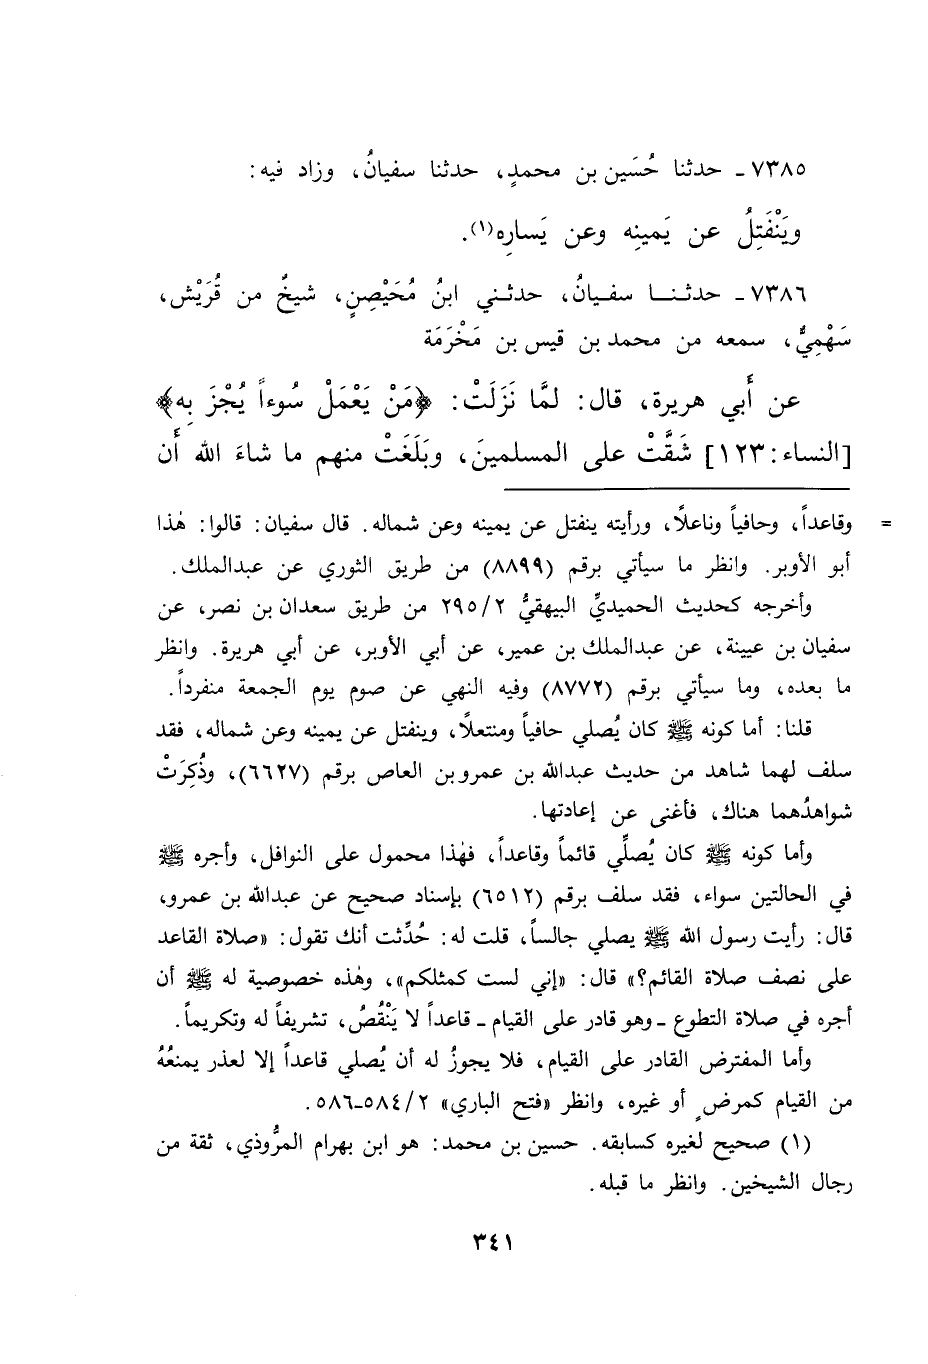 ٧٣٨٥ - حدثنا حُسَين بن محمدٍ، حدثنا سفيانُ، وزاد فيه:
ويَنْفَتِلُ عن يَمينِه وعن يَسارِه(١).
٧٣٨٦ - حدثنا سفيانُ، حدثني ابنُ مُحَيْصِنٍ، شيخٌ من قُرَيْش،
سَهْمِيٌّ، سمعه من محمد بن قيس بن مَخْرَمَة
عن أَبي هريرة، قال: لمَّا نَزَلَتْ: ﴿مَنْ يَعْمَلْ سُوءاً يُجْزَ بِه﴾
[النساء: ١٢٣] شَقَّتْ على المسلمينَ، وبَلَغَتْ منهم ما شاءَ الله أَن
= وقاعداً، وحافياً وناعلًا، ورأيته ينفتل عن يمينه وعن شماله. قال سفيان: قالوا: هٰذا
أبو الأوبر. وانظر ما سيأتي برقم (٨٨٩٩) من طريق الثوري عن عبدالملك.
وأخرجه كحديث الحميديِّ البيهقيُّ ٢٩٥/٢ من طريق سعدان بن نصر، عن
سفيان بن عيينة، عن عبدالملك بن عمير، عن أبي الأوبر، عن أبي هريرة. وانظر
ما بعده، وما سيأتي برقم (٨٧٧٢) وفيه النهي عن صوم يوم الجمعة منفرداً.
قلنا: أما كونه ﷺ كان يُصلي حافياً ومنتعلًا، وينفتل عن يمينه وعن شماله، فقد
سلف لهما شاهد من حديث عبدالله بن عمرو بن العاص برقم (٦٦٢٧)، وذُكِرَتْ
شواهدُهما هناك، فأغنى عن إعادتها.
وأما كونه ﷺ كان يُصلِّي قائماً وقاعداً، فهٰذا محمول على النوافل، وأجره ﷺ
في الحالتين سواء، فقد سلف برقم (٦٥١٢) بإسناد صحيح عن عبدالله بن عمرو،
قال: رأيت رسول الله ﷺ يصلي جالساً، قلت له: حُدِّثت أنك تقول: «صلاة القاعد
على نصف صلاة القائم؟» قال: «إني لست كمثلكم»، وهٰذه خصوصية له ﷺ أن
أجره في صلاة التطوع - وهو قادر على القيام - قاعداً لا يَنْقُصُ، تشريفاً له وتكريماً.
وأما المفترض القادر على القيام، فلا يجوزُ له أن يُصلي قاعداً إلا لعذر يمنعُهُ
من القيام كمرضٍ أو غيره، وانظر «فتح الباري» ٥٨٤/٢-٥٨٦.
(١) صحيح لغيره كسابقه. حسين بن محمد: هو ابن بهرام المرُّوذي، ثقة من
رجال الشيخين. وانظر ما قبله.
٣٤١